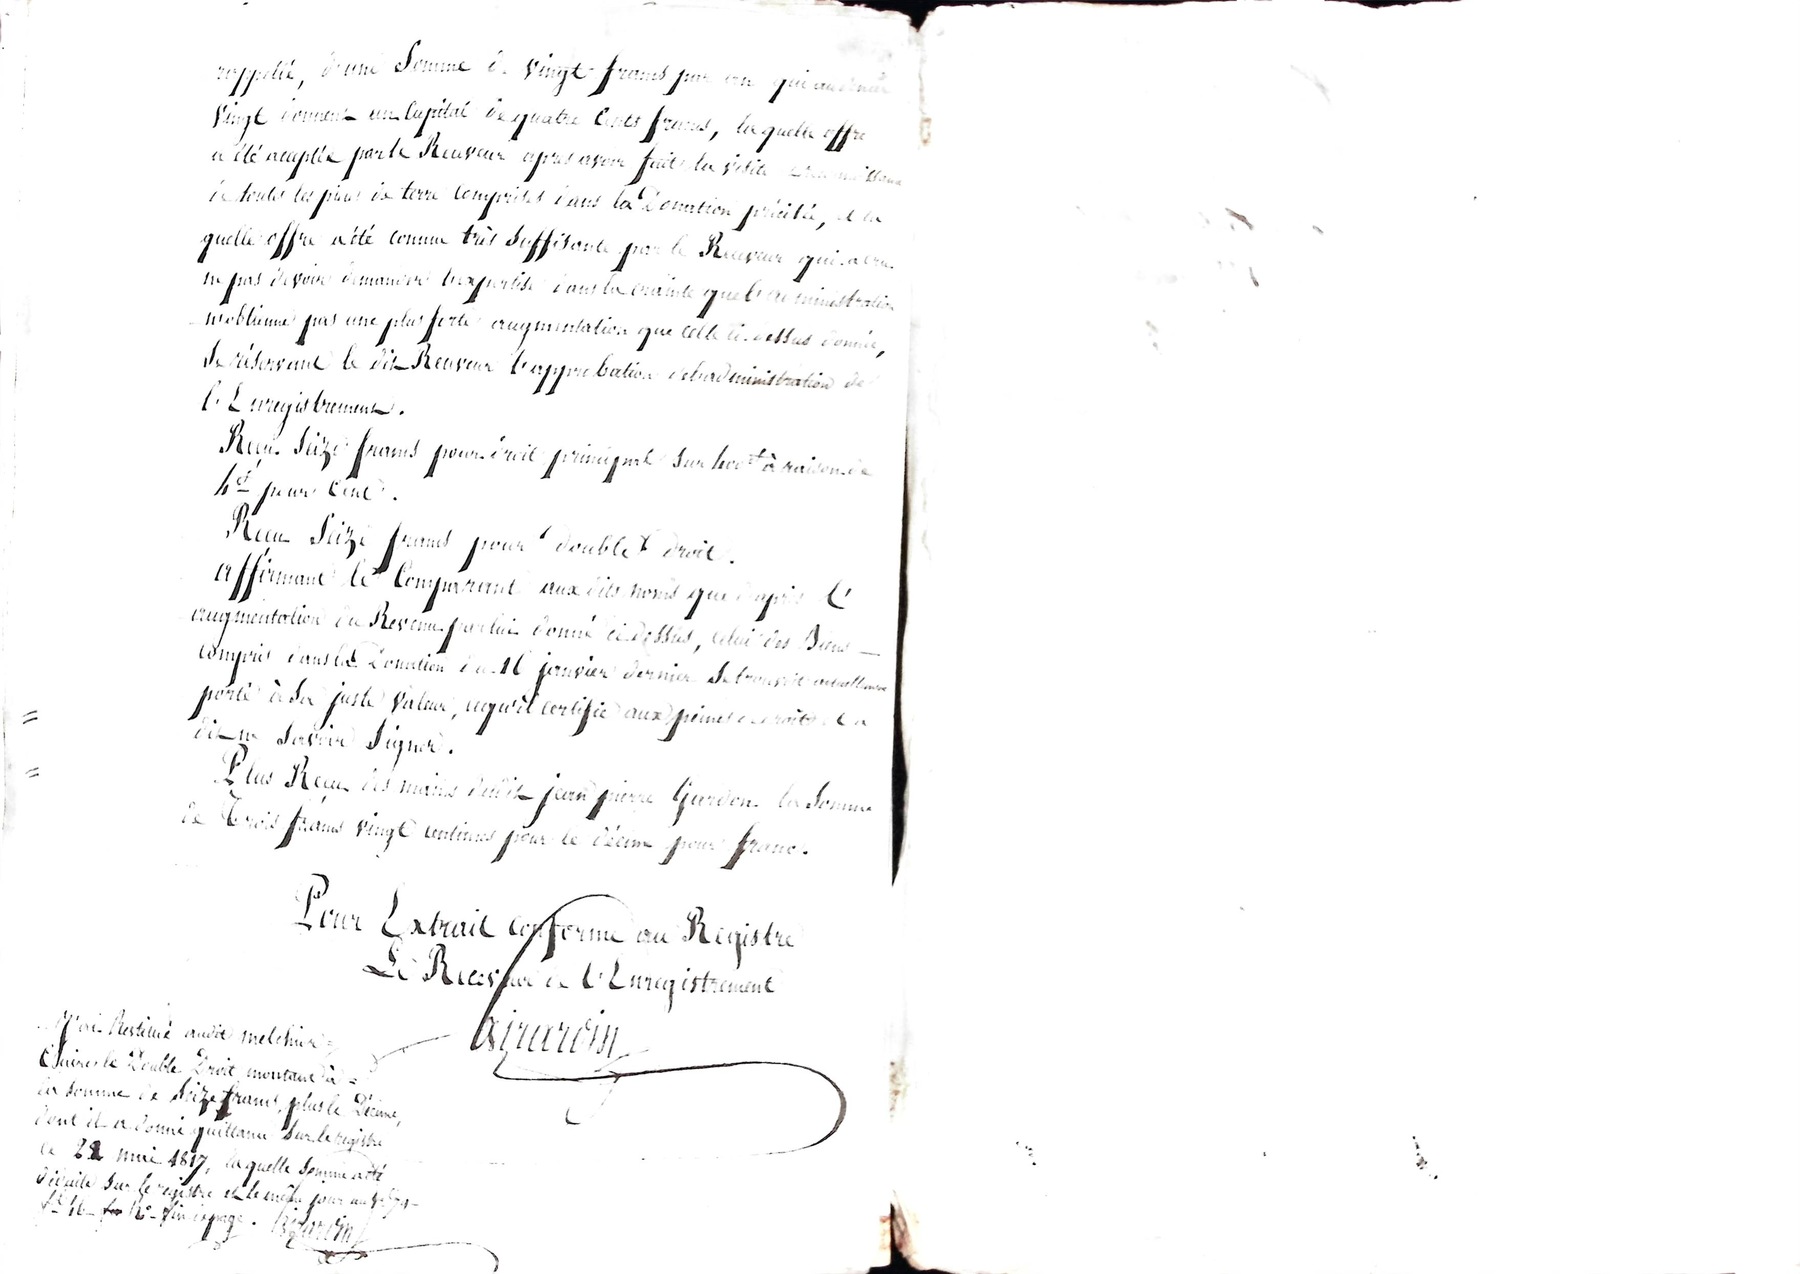 rappelée, d'une Somme de vingt francs par an qui au denier
vingt donnent un Capital de quatre Cents francs, laquelle offre
a été acceptée par le Receveur apres avoir fait la visite
de toutes les pieces de terre comprises dans la Donation précitée, et la
quelle offre a été connue très suffisante par le Receveur qui a cru
ne pas devoir demander l'expertise dans la crainte que l'administration
n'obtienne pas une plus forte augmentation que celle ci-dessus donnée,
Se réservant le dit Receveur l'approbation de l'administration de
l'Enregistrement.
Reçu Seize francs pour droit principal sur 400 f à raison de
4 f pour Cent.
Reçu Seize francs pour double droit.
affirmant le Comparant aux dits noms que d'après l'
augmentation du Revenu par lui donné ci-dessus, celui des Biens
compris dans la Donation du 16 janvier dernier Se trouvoit
porté à Sa juste Valeur, ce qu'il certifie aux peines de droit. Et a
dit ne Savoir Signer.
Plus Reçu des mains dudit jean pierre Gardon la Somme
de Trois francs vingt centimes pour le décime pour franc.
Pour Extrait conforme au Registre
Le Receveur de l'Enregistrement
Girardin
Restitué audit melchior
le Double Droit montant à
la somme de Seize francs, plus le Décime,
dont il a donné quittance Sur le registre
le 22 mai 1817, laquelle Somme a été
Sur le registre et le même jour
Girardin